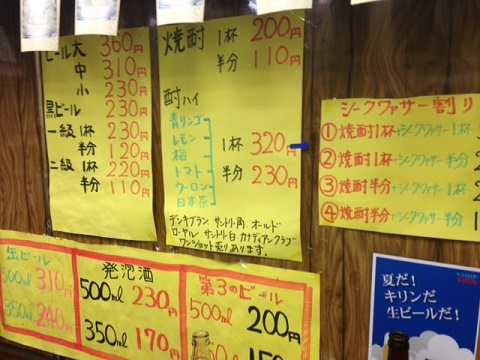 ビール大 360円
中 310円
小 230円
黒ビール 230円
一級1杯 230円
半分 120円
二級1杯 220円
半分 110円
焼酎 1杯 200円
半分 110円
酎ハイ
青リンゴ
レモン
梅
トマト
ウーロン
日本茶
1杯 320円
半分 230円
デンキブラン サントリー角 オールド
ローヤル サントリー白 カナディアンクラブ
ワンショット売りあります。
シークワァサー割り
①焼酎1杯+シークワァサー1杯
②焼酎1杯+シークワァサー半分
③焼酎半分+シークワァサー1杯
④焼酎半分+シークワァサー半分
缶ビール
500ml 310円
350ml 240円
発泡酒
500ml 230円
350ml 170円
第3のビール
500ml 200円
夏だ!
キリンだ
生ビールだ!